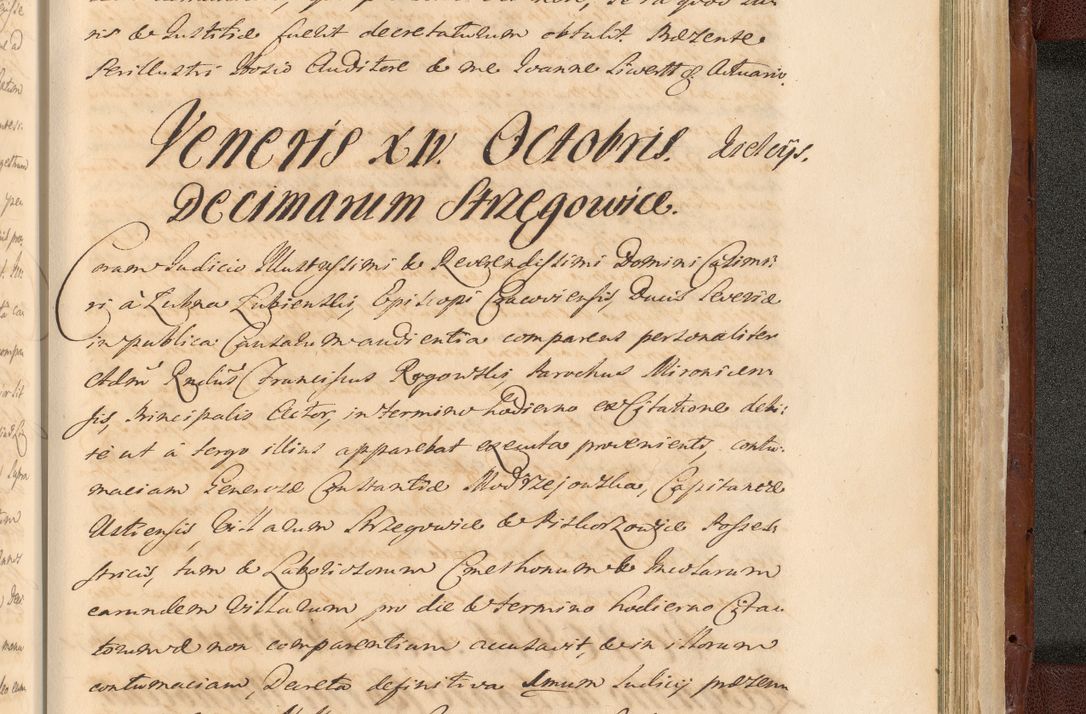 ris & Iustitiæ fuerit decretaturum obtulit. Præsente
Perillustri Hosio Auditore & me Ioanne Siwertt Actuario.
Veneris XIV. Octobris.
Decimarum Strzegowice.
Coram Iudicio Illustrissimi & Reverendissimi Domini Casimi-
ri à Łubna Łubienski, Episcopi Cracoviensis, Ducis Severiæ
in publica Causarum audientia comparens personaliter
Adm̃ Rndus Franciscus Rogowski, Parochus Mironicen-
sis, Principalis Actor, in termino hodierno ex Citatione debi-
te ut à tergo illius apparebat executa provenienti, contu-
maciam Generosæ Constantiæ Modrzejowska, Capitaneæ
Ustiensis, Villarum Strzegowice & Piskorzowice Posses-
stricis, tum & Laboriosorum Cmethonum & Incolarum
earundem Villarum pro die & termino hodierno Cita-
torum & non comparentium accusavit, & in illorum
contumaciam, Decreta definitiva Iudicij præsen-